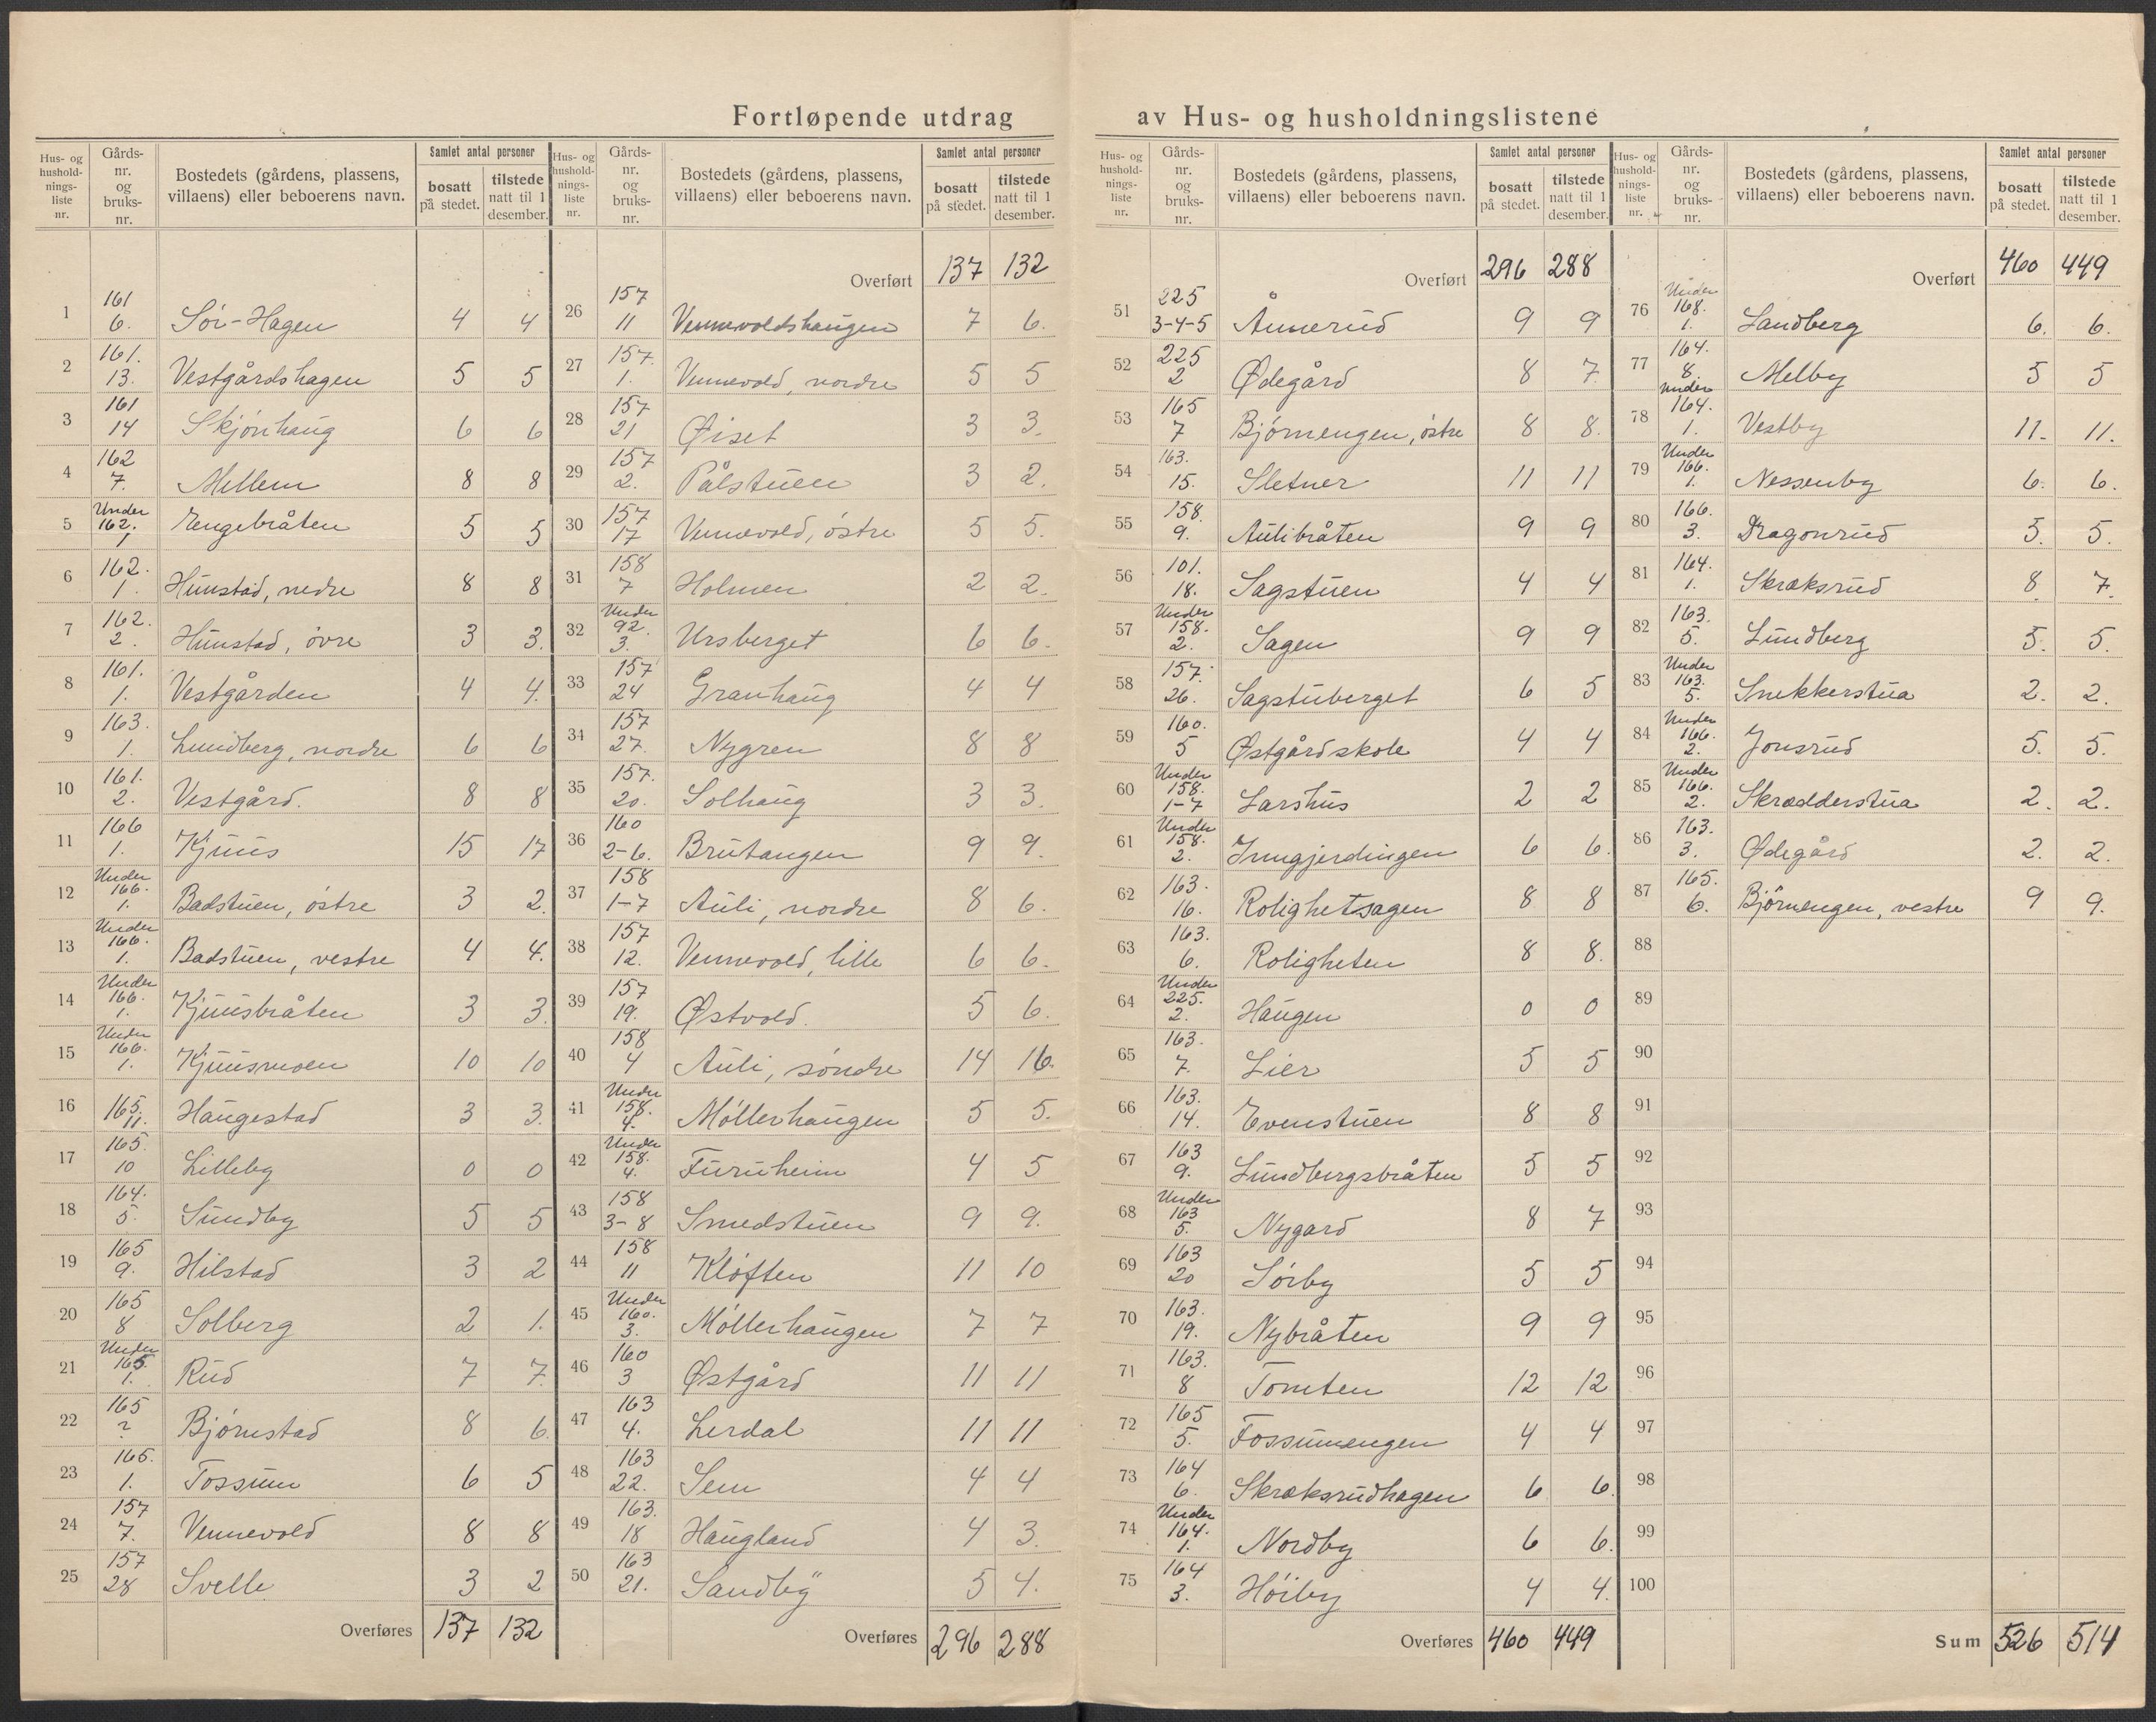 Fortløpende utdrag av Hus- og husholdningslistene
Hus- og husholdnings-liste nr. | Gårds-nr. og bruks-nr. | Bostedets (gårdens, plassens, villaens) eller beboerens navn. | Samlet antal personer: bosatt på stedet. | tilstede natt til 1 desember.
1 | 161 6. | Sör-Hagen | 4 | 4
2 | 161. 13. | Vestgårdshagen | 5 | 5
3 | 161 14 | Skjönhaug | 6 | 6
4 | 162 7. | Mellem | 8 | 8
5 | Under 162. 1 | Engebråten | 5 | 5
6 | 162. 1. | Hunstad, nedre | 8 | 8
7 | 162. 2. | Hunstad, övre | 3 | 3.
8 | 161. 1. | Vestgården | 4 | 4.
9 | 163. 1. | Lundberg, nordre | 6 | 6
10 | 161. 2. | Vestgård. | 8 | 8
11 | 166 1. | Kjuus | 15 | 17
12 | Under 166. 1. | Badstuen, östre | 3 | 2.
13 | Under 166. 1. | Badstuen, vestre | 4 | 4.
14 | Under 166. 1. | Kjuusbråten | 3 | 3.
15 | Under 166. 1. | Kjuusmoen | 10 | 10
16 | 165. 11. | Haugestad | 3 | 3.
17 | 165. 10 | Lilleby | 0 | 0
18 | 164. 5. | Sundby | 5 | 5
19 | 165 9. | Hilstad | 3 | 2
20 | 165 8 | Solberg | 2 | 1.
21 | Under 165. 1. | Rud | 7 | 7.
22 | 165 ? | Björnstad | 8 | 6.
23 | 165. 1. | Fossum | 6 | 5
24 | 157 7. | Vennevold | 8 | 8
25 | 157 28 | Svelle | 3 | 2
Overføres | 137 | 132
Hus- og husholdnings-liste nr. | Gårds-nr. og bruks-nr. | Bostedets (gårdens, plassens, villaens) eller beboerens navn. | Samlet antal personer: bosatt på stedet. | tilstede natt til 1 desember.
Overført | 137 | 132
26 | 157 11 | Vennevoldshaugen | 7 | 6.
27 | 157. 1. | Vennevold, nordre | 5 | 5
28 | 157 21 | Øiset | 3 | 3.
29 | 157 2. | Pålstuen | 3 | 2.
30 | 157 17 | Vennevold, östre | 5 | 5.
31 | 158 7 | Holmen | 2 | 2.
32 | Under 92. 3. | Ursberget | 6 | 6.
33 | 157 24 | Granhaug | 4 | 4
34 | 157 27. | Nygren | 8 | 8
35 | 157. 20. | Solhaug | 3 | 3.
36 | 160 2-6. | Brutangen | 9 | 9.
37 | 158 1-7 | Auli, nordre | 8 | 6.
38 | 157 12. | Vennevold, lille | 6 | 6.
39 | 157 19. | Østvold | 5 | 6.
40 | 158 4 | Auli, söndre | 14 | 16.
41 | Under 158. 4. | Möllerhaugen | 5 | 5.
42 | Under 158. 4. | Furuheim | 4 | 5
43 | 158 3-8 | Smedstuen | 9 | 9.
44 | 158 11 | Klöften | 11 | 10
45 | Under 160. 3. | Möllerhaugen | 7 | 7
46 | 160 3 | Østgård | 11 | 11
47 | 163 4. | Lerdal | 11 | 11
48 | 163 22. | Sem | 4 | 4
49 | 163. 18 | Haugland | 4 | 3.
50 | 163 21. | Sandby | 5 | 4.
Overføres | 296 | 288
Hus- og husholdnings-liste nr. | Gårds-nr. og bruks-nr. | Bostedets (gårdens, plassens, villaens) eller beboerens navn. | Samlet antal personer: bosatt på stedet. | tilstede natt til 1 desember.
Overført | 296 | 288
51 | 225 3-4-5 | Ånnerud | 9 | 9
52 | 225 2 | Ødegård | 8 | 7
53 | 165 7 | Björnengen, östre | 8 | 8.
54 | 163. 15. | Sletner | 11 | 11
55 | 158. 9. | Aulibråten | 9 | 9
56 | 101. 18. | Sagstuen | 4 | 4
57 | Under 158. 2. | Sagen | 9 | 9
58 | 157. 26. | Sagstuberget | 6 | 5
59 | 160. 5 | Østgård skole | 4 | 4
60 | Under 158. 1-7 | Larshus | 2 | 2
61 | Under 158. 2. | Inngjerdingen | 6 | 6.
62 | 163. 16. | Rolighetsagen | 8 | 8
63 | 163. 6. | Roligheten | 8 | 8.
64 | Under 225. 2. | Haugen | 0 | 0
65 | 163. 7. | Lier | 5 | 5
66 | 163. 14. | Evenstuen | 8 | 8
67 | 163 9. | Lundbergsbråten | 5 | 5
68 | Under 163 5. | Nygard | 8 | 7
69 | 163 20 | Sörby | 5 | 5
70 | 163. 19. | Nybråten | 9 | 9
71 | 163. 8 | Tomten | 12 | 12
72 | 165 5. | Fossumengen | 4 | 4
73 | 164 6. | Skræksrudhagen | 6 | 6.
74 | Under 164. 1. | Nordby | 6 | 6.
75 | 164 3. | Höiby | 4 | 4.
Overføres | 460 | 449
Hus- og husholdnings-liste nr. | Gårds-nr. og bruks-nr. | Bostedets (gårdens, plassens, villaens) eller beboerens navn. | Samlet antal personer: bosatt på stedet. | tilstede natt til 1 desember.
Overført | 460 | 449
76 | Under 168. 1. | Sandberg | 6. | 6.
77 | 164. 8. | Melby | 5 | 5
78 | Under 164. 1. | Vestby | 11. | 11.
79 | Under 166. 1. | Nessenby | 6. | 6.
80 | 166. 3. | Dragonrud | 5. | 5.
81 | 164. 1. | Skræksrud | 8. | 7.
82 | 163. 5. | Lundberg | 5. | 5.
83 | Under 163. 5. | Snekkerstua | 2. | 2.
84 | Under 166. 2. | Jonsrud | 5. | 5.
85 | Under 166. 2. | Skrædderstua | 2. | 2.
86 | 163. 3. | Ødegård | 2. | 2.
87 | 165. 6. | Björnengen, vestre | 9 | 9.
88
89
90
91
92
93
94
95
96
97
98
99
100
Sum | 526 | 514